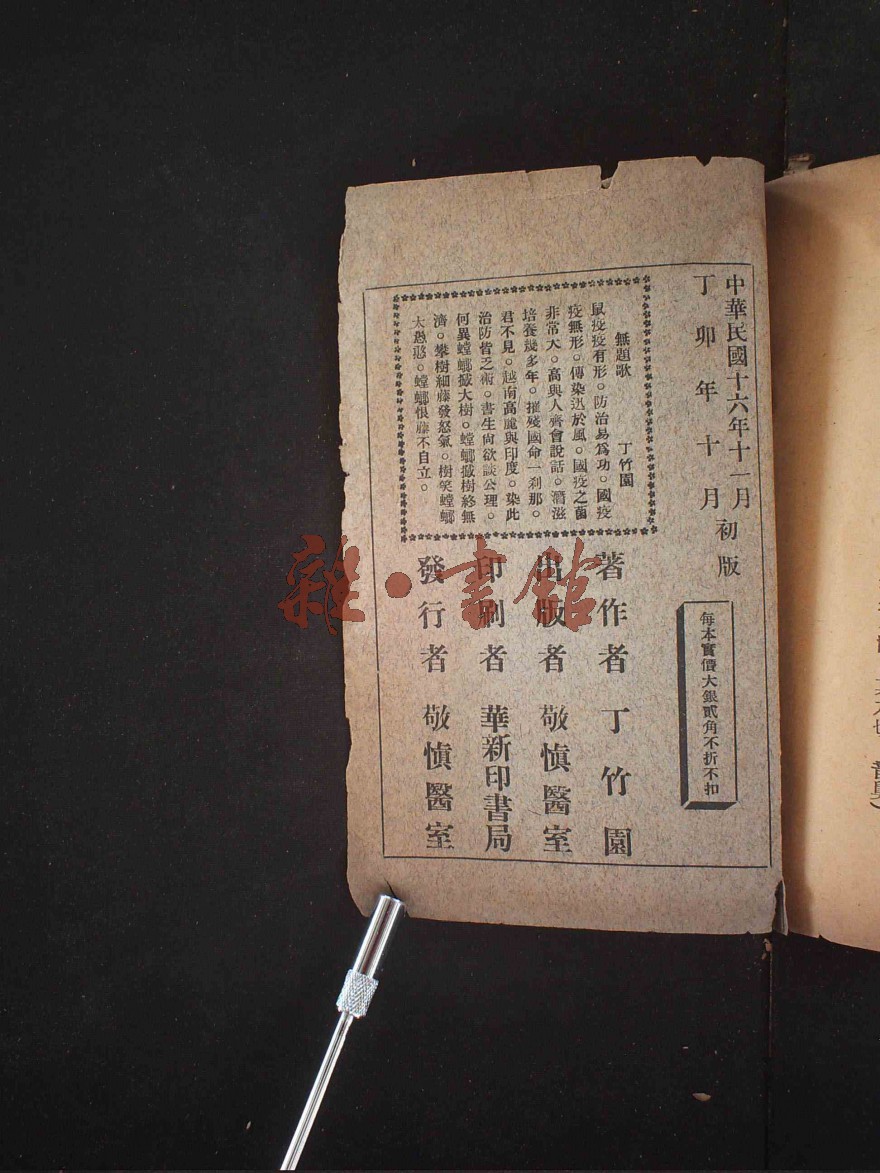 中華民國十六年十一月
丁卯年十月初版
每本實價大銀貳角不折不扣
無題歌 丁竹園
鼠疫疫有形。防治易爲功。國疫
疫無形。傳染迅於風。國疫之菌
非常大。高與人齊會說話。潛滋
培養幾多年。摧殘國命一刹那。
君不見。越南高麗與印度。染此
治防皆乏術。書生尚欲談公理。
何異螳螂撼大樹。螳螂撼樹終無
濟。攀樹細藤發怒氣。樹笑螳螂
太愚憨。螳螂恨藤不自立。
著作者 丁竹園
出版者 敬慎醫室
印刷者 華新印書局
發行者 敬慎醫室
雜·書館